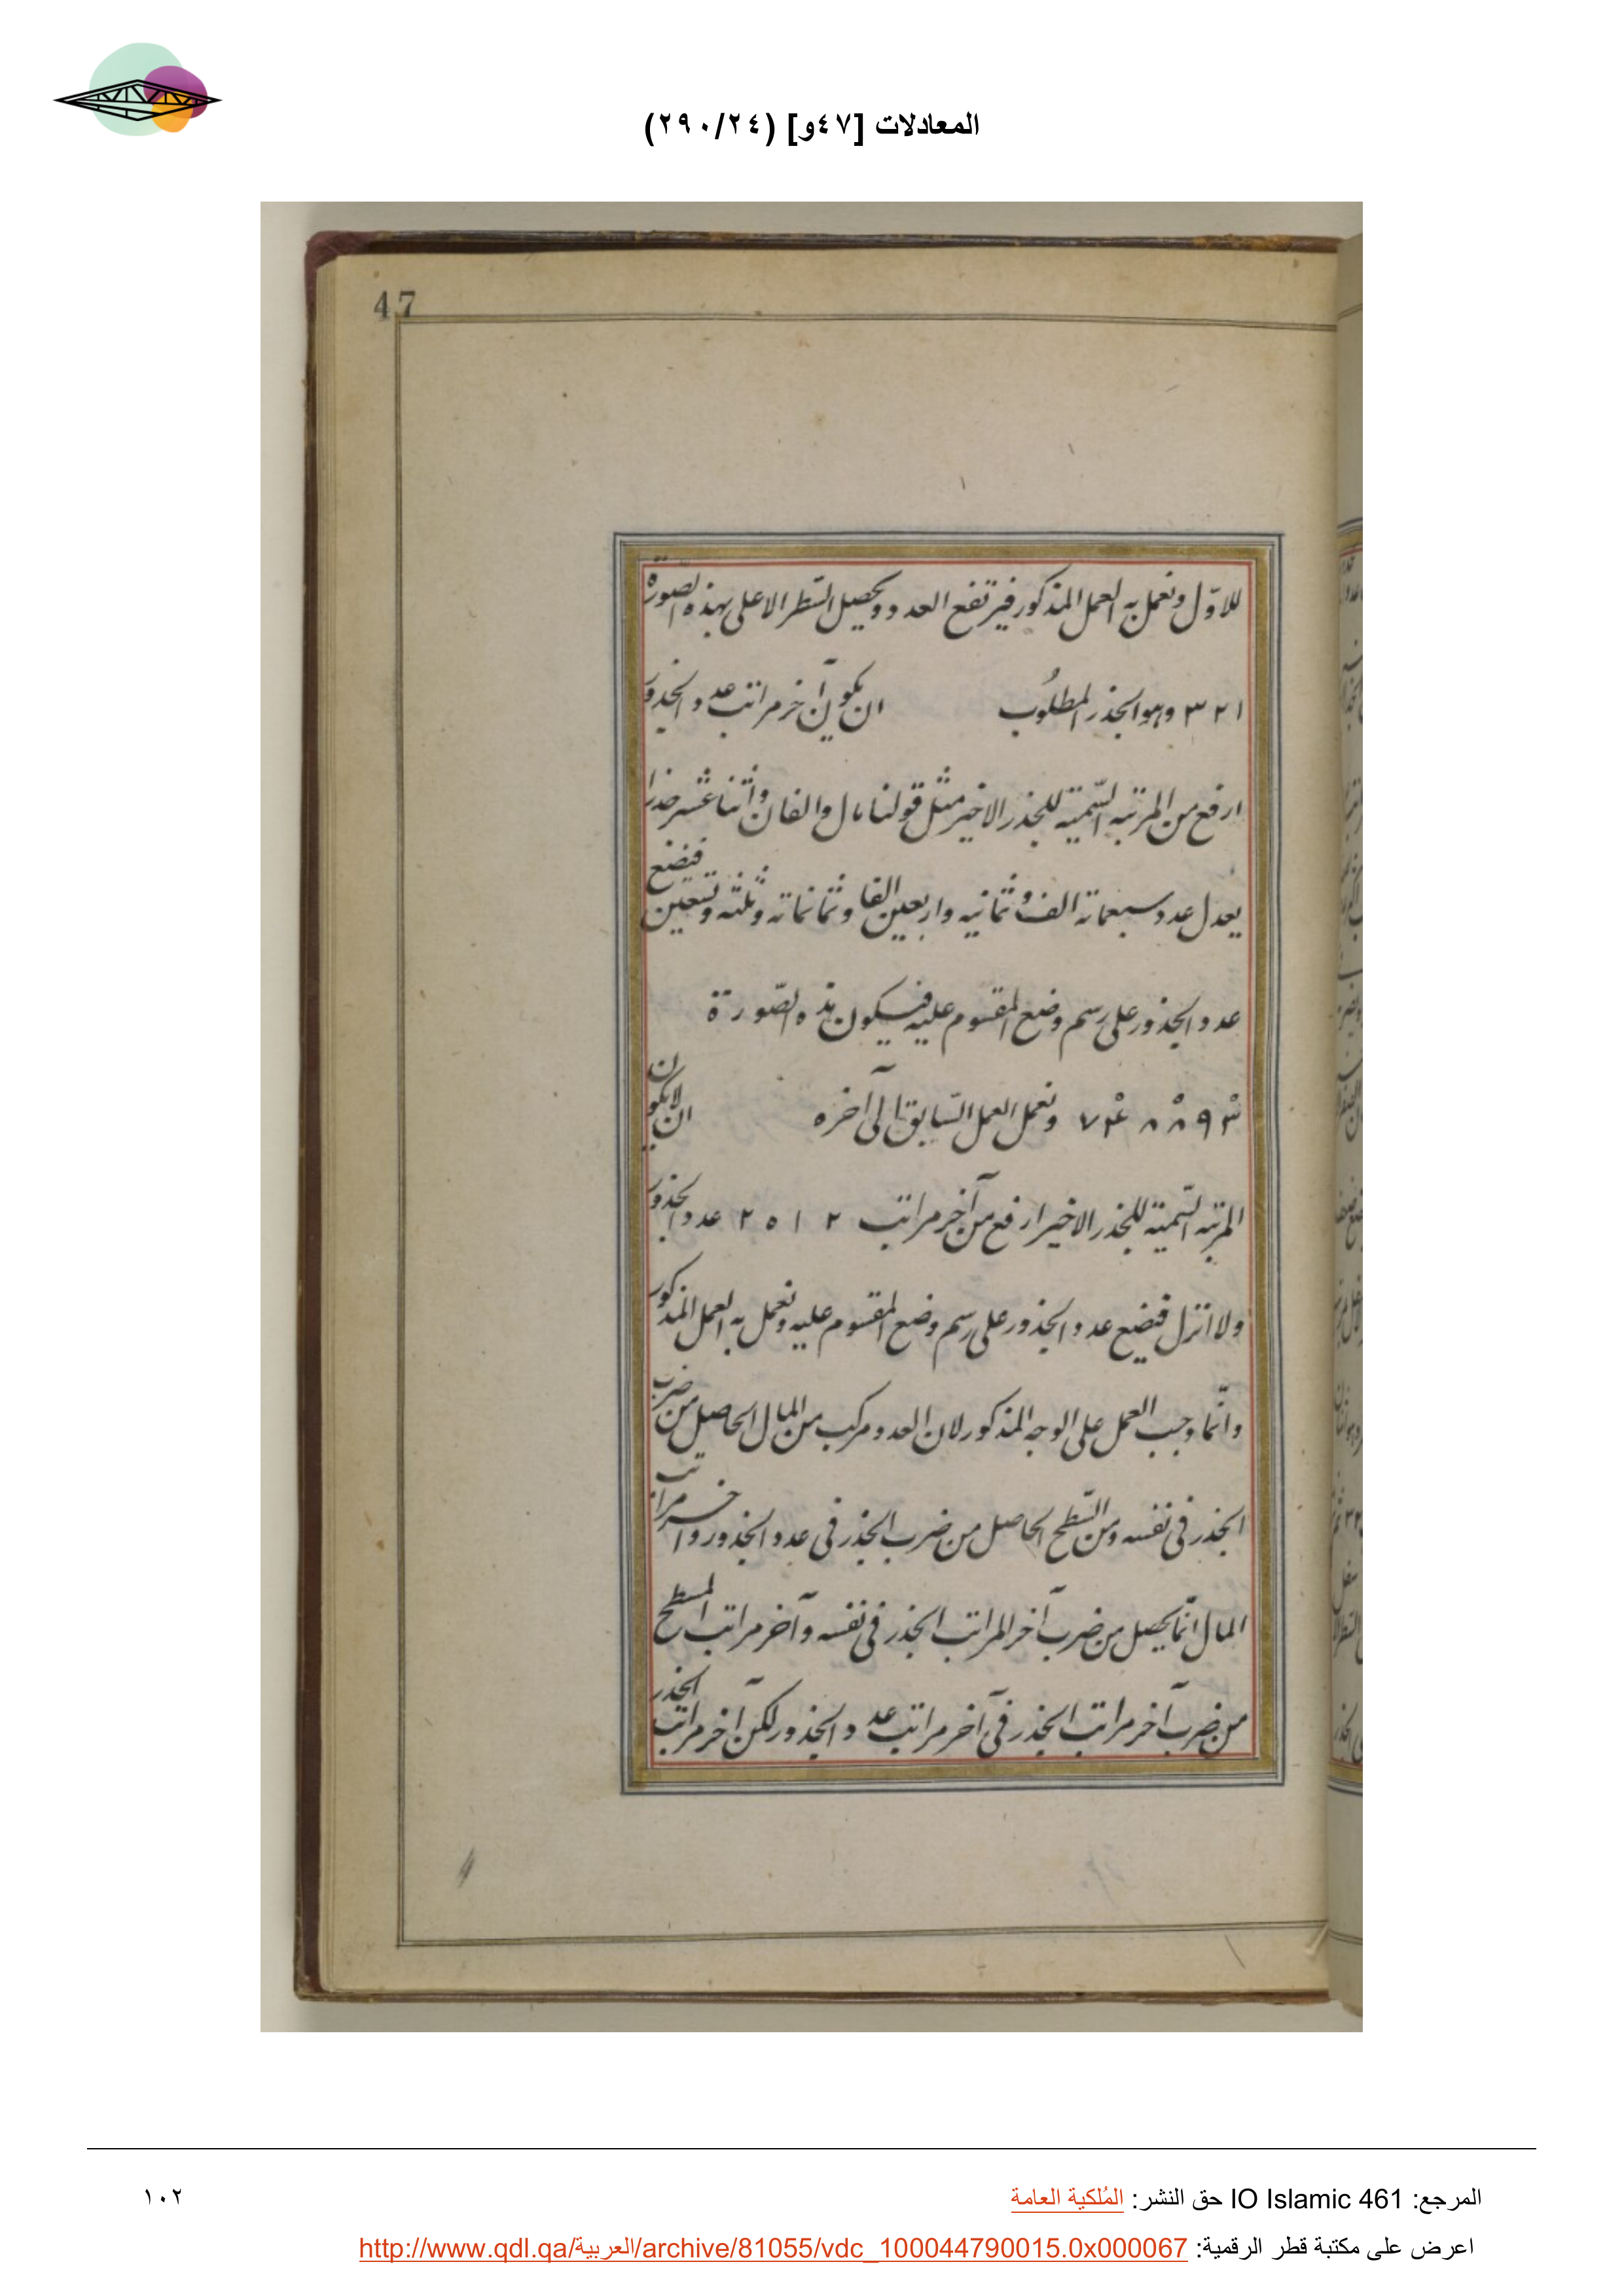 المعادلات [٤٧و] (٢٩٠/٢٤)
47
للاوّل ونعمل به العمل المذكور فيرتفع العدد ويحصل السّطر الاعلى بهذه الصورة
٣٢١ وهو الجذر المطلوب ان يكون آخر مراتب عدد الجذور
ارفع من المرتبه السّمية للجذر الاخير مثل قولنا مال والفان واثنا عشر جذرا
يعدل عدد سبعمائة الف وثمانيه واربعين الفا وثمانمائة وثلثه وتسعين فنضع
عدد الجذور على رسم وضع المقسوم عليه فيكون هذه الصّورة
٧٤٨٨٩٣ ونعمل العمل السّابق الى آخره ان لا يكون
المرتبه السّمية للجذر الاخير ارفع من آخر مراتب ٢ ١ ٥ ٢ عدد الجذور
ولا انزل فنضع عدد الجذور على رسم وضع المقسوم عليه ونعمل به العمل المذكور
وانّما وجب العمل على الوجه المذكور لان العدد مركب من المال الحاصل من ضرب
الجذر فى نفسه ومن السّطح الحاصل من ضرب الجذر فى عدد الجذور وآخر مراتب
المال انّما يحصل من ضرب آخر المراتب الجذر فى نفسه وآخر مراتب المسطح
من ضرب آخر مراتب الجذر فى آخر مراتب عدد الجذور لكن آخر مراتب الجذر
المرجع: IO Islamic 461 حق النشر: المُلكية العامة
١٠٢
اعرض على مكتبة قطر الرقمية: http://www.qdl.qa/العربية/archive/81055/vdc_100044790015.0x000067